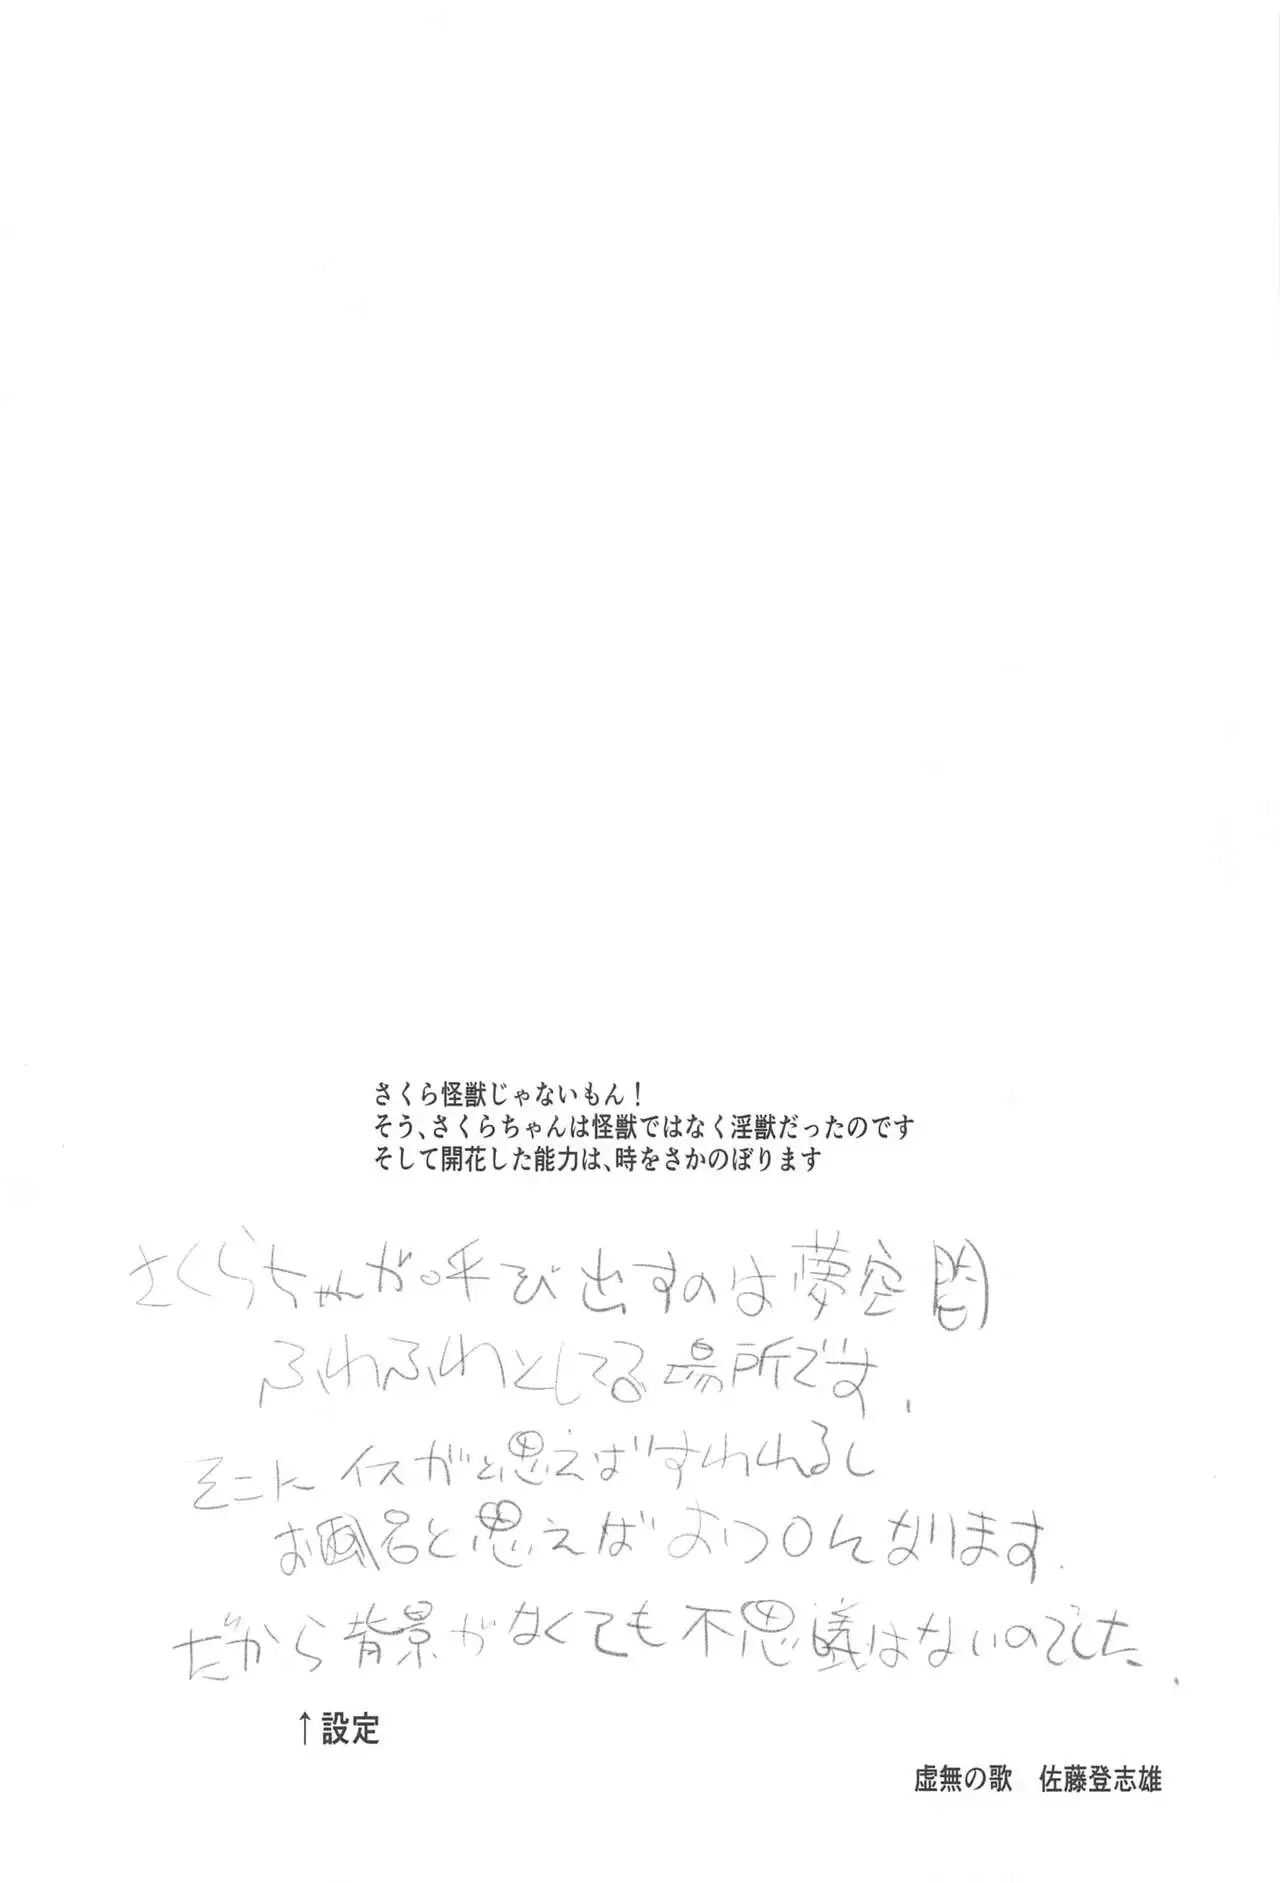 さくら怪獣じゃないもん！
そう、さくらちゃんは怪獣ではなく淫獣だったのです
そして開花した能力は、時をさかのぼります
さくらちゃんが呼び出すのは夢空間
ふわふわとしてる場所です.
そこにイスがと思えばすわれるし
お風呂と思えば なります.
だから背景がなくても不思議はないのでした.
↑設定
虚無の歌　佐藤登志雄